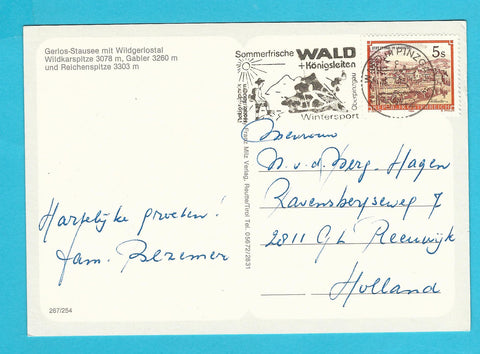 Gerlos-Stausee mit Wildgerlostal
Wildkarspitze 3078 m, Gabler 3260 m
und Reichenspitze 3303 m
Sommerfrische WALD
+Königsleiten
Oberpinzgau
Wintersport
5s
Franz Milz Verlag, Reutte/Tirol Tel. 05672/2831
Mevrouw
N.v.d. Berg-Hagen
Ravensbergseweg 7
2811 GL Reeuwijk
Holland
Hartelijke groeten!
Fam. Bezemer
267/254